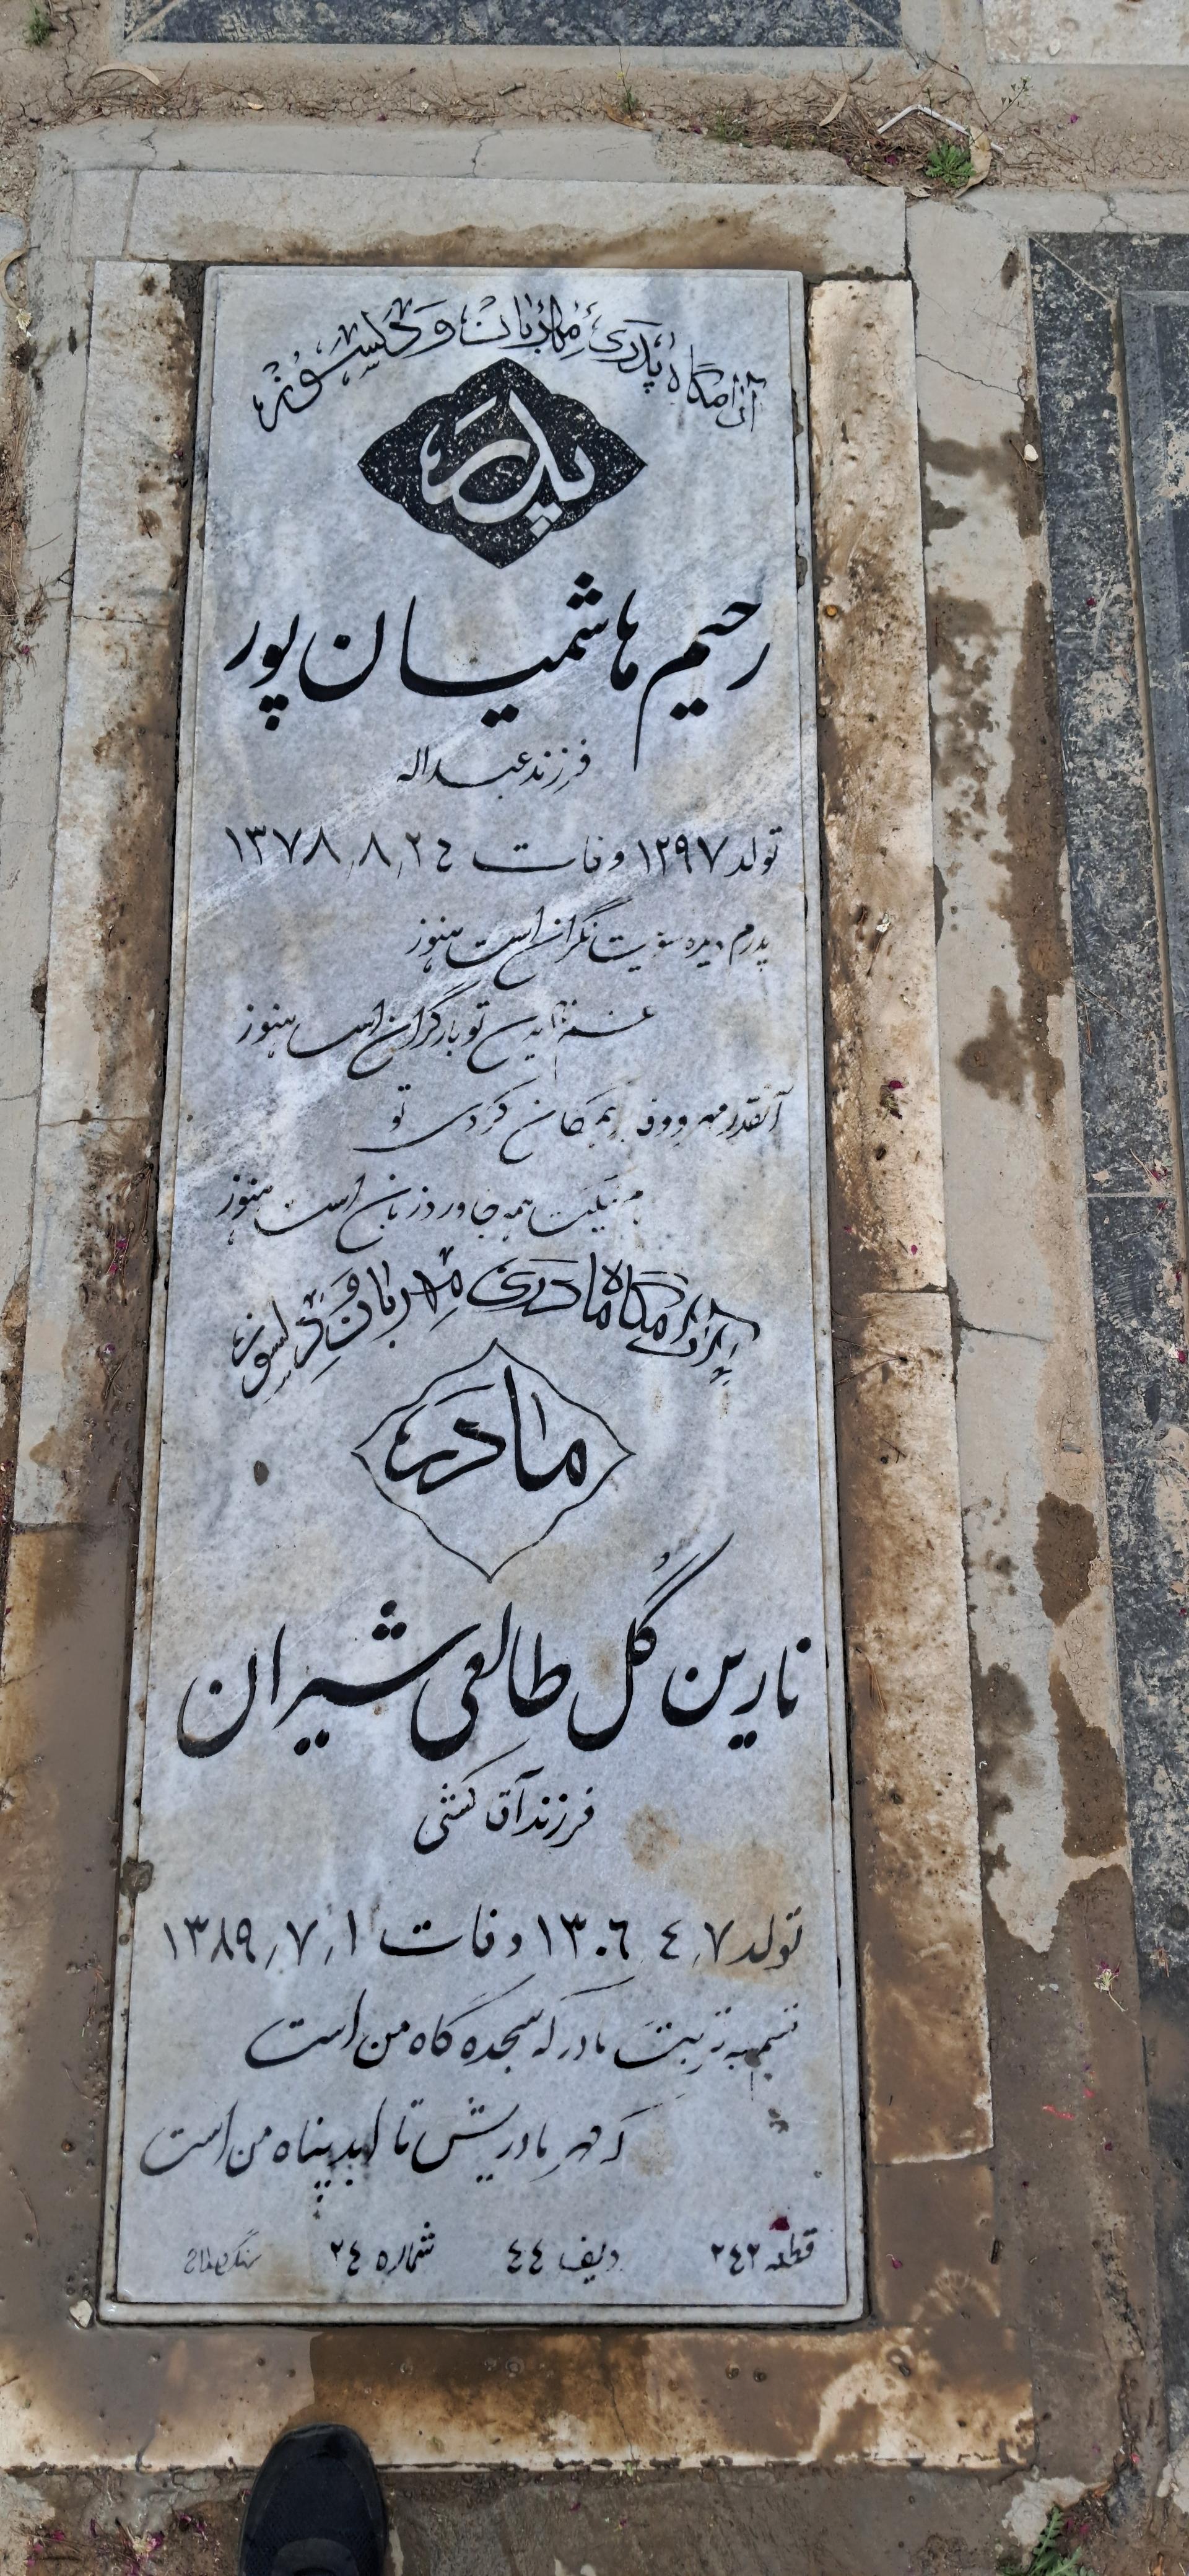 آرامگاه پدری مهربان و دلسوز
پدر
رحیم هاشمیان پور
فرزند عبداله
تولد ۱۲۹۷ وفات ۲٤٫۸٫۱۳۷۸
پدرم دیده بسویت نگران است هنوز
غم نادیدن تو بار گران است هنوز
آنقدر مهر و وفا بر همگان کردی تو
نام نیکت همه جا ورد زبان است هنوز
آرامگاه مادری مهربان و دلسوز
مادر
نارین گل طالعی شیران
فرزند آقا کشی
تولد ۷٫٤٫۱۳۰٦ وفات ۱٫۷٫۱۳۸۹
قسم به تربت مادر که سجده گاه من است
که مهر مادریش تا ابد پناه من است
قطعه ۲٤۲ ردیف ٤٤ شماره ۲٤